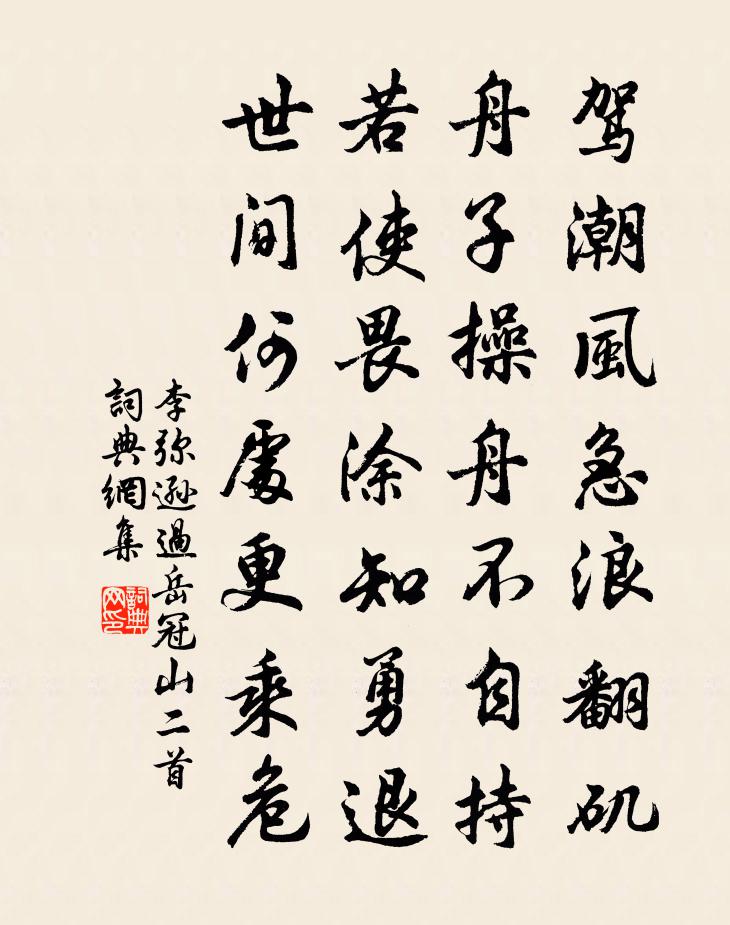 驾潮風急浪翻矶
舟子操舟不自持
若使畏涂知勇退
世间何處更乘危
李弥遜過岳冠山二首
詞典網集
詞典网印